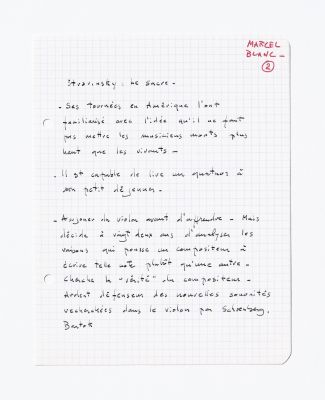 MARCEL
BLANC -
2
Stravinsky : Le Sacre -
- Ses tournées en Amérique l'ont
familiarisé avec l'idée qu'il ne faut
pas mettre les musiciens morts plus
haut que les vivants -
- Il est capable de lire un quatuor à
son petit déjeuner -
- du violon avant d'apprendre - Mais
décide à vingt deux ans d'analyser les
raisons qui pousse un compositeur à
écrire telle note plutôt qu'une autre -
Cherche la "vérité" du compositeur -
Ardent défenseur des nouvelles sonorités
recherchées dans le violon par Schoenberg,
Bartok